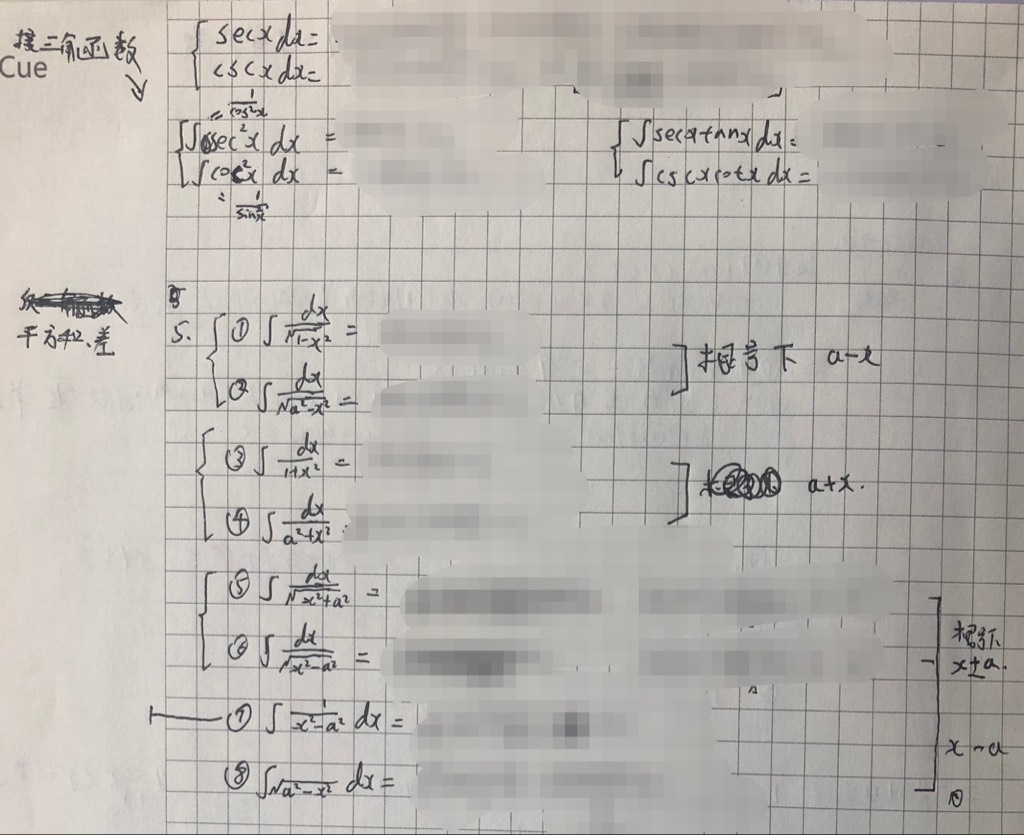 接三角函数
Cue
secx dx=
cscx dx=
= 1/cos²x
∫sec²x dx =
∫csc²x dx =
= 1/sin²x
∫secxtanx dx=
∫cscxcotx dx=
平方和、差
5. ① ∫ dx/√1-x² =
② ∫ dx/√a²-x² =
根号下 a-x
③ ∫ dx/1+x² =
④ ∫ dx/a²+x²
a+x.
⑤ ∫ dx/√x²+a² =
⑥ ∫ dx/√x²-a² =
根号下
x±a.
⑦ ∫ 1/x²-a² dx =
x-a
⑧ ∫√a²-x² dx =